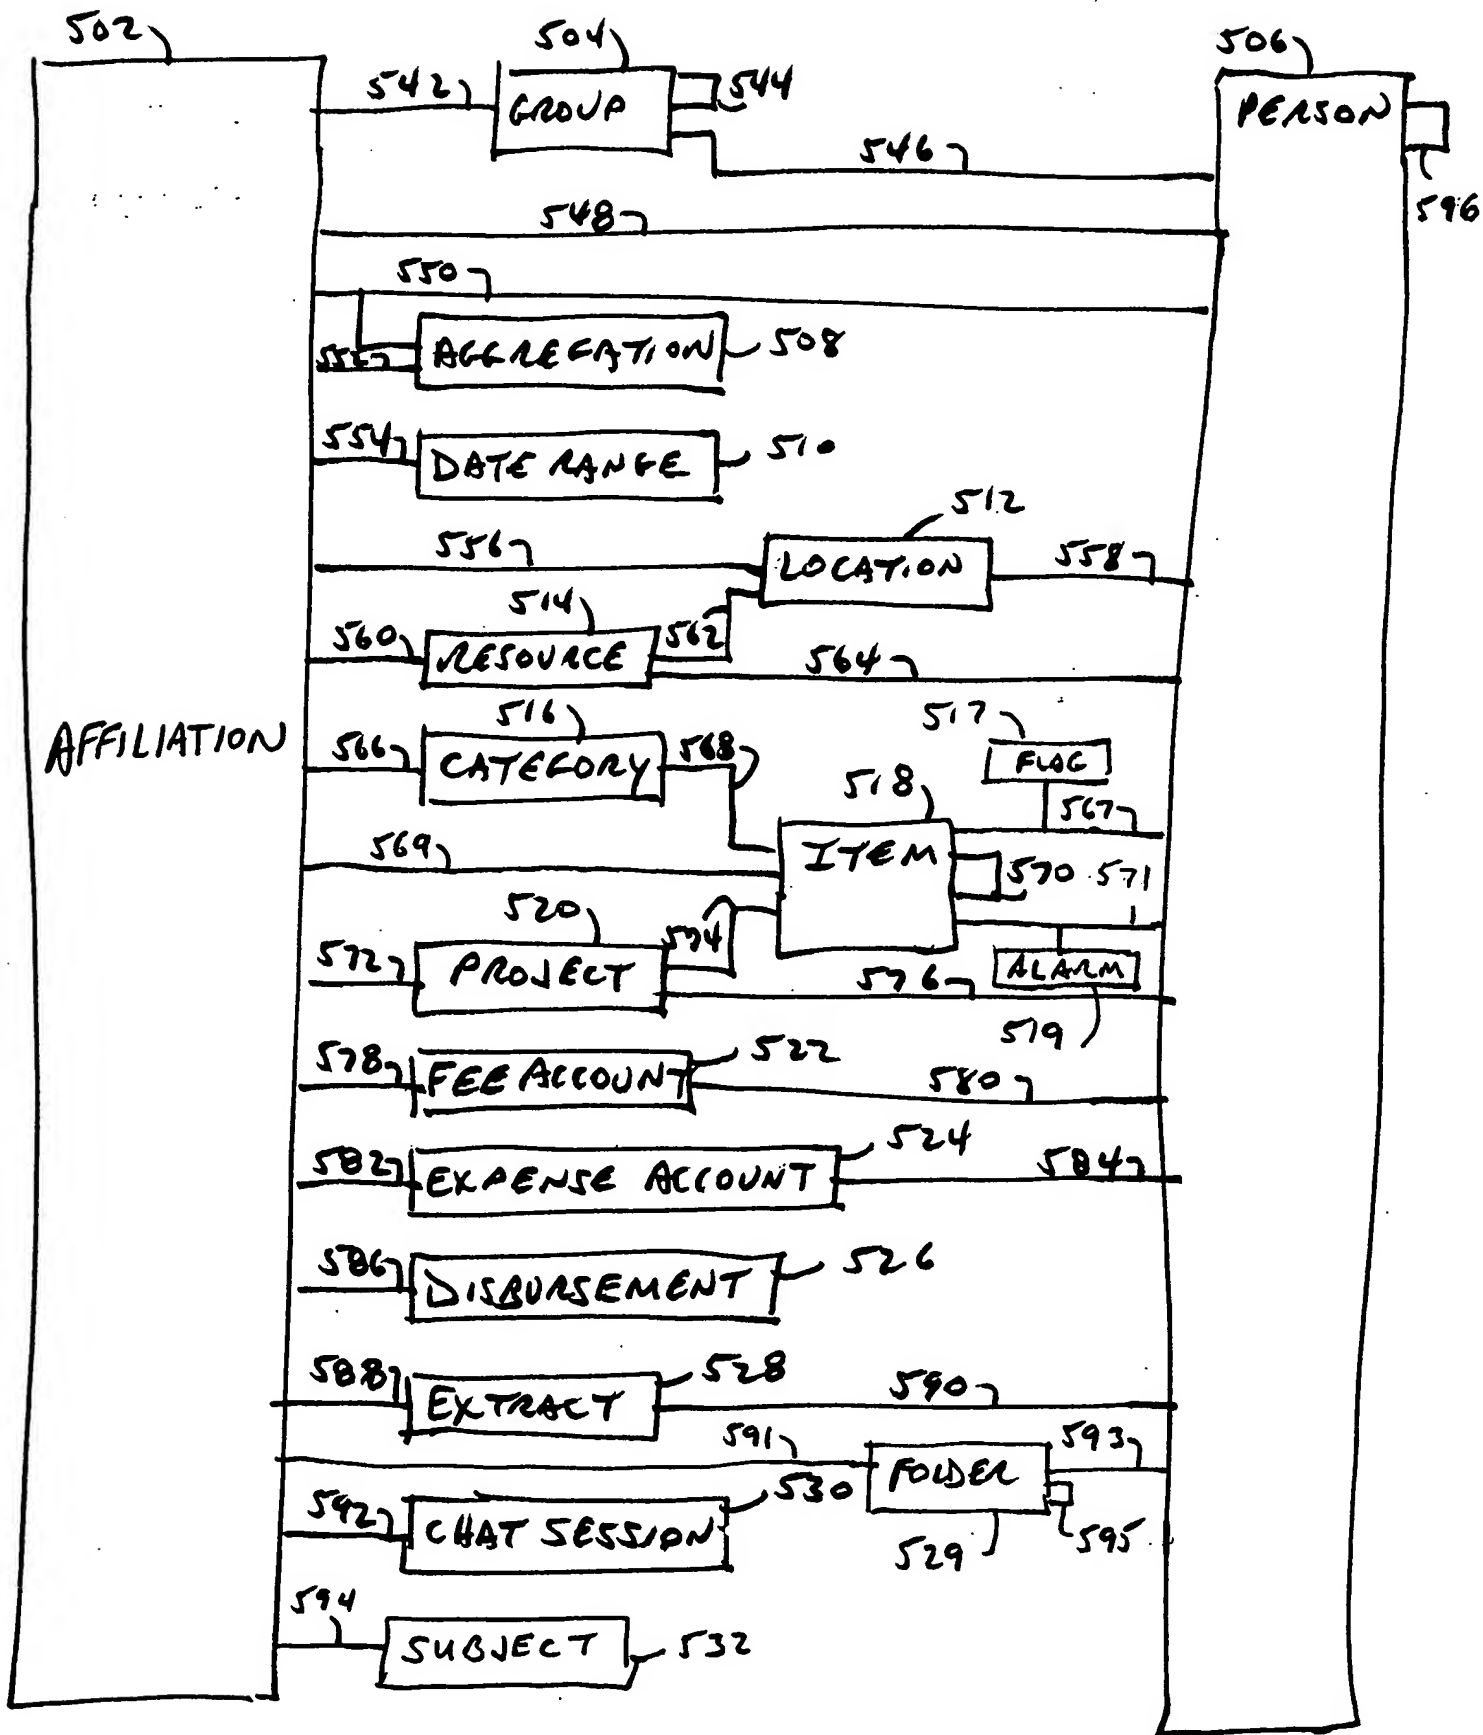 502
504
506
542
GROUP
544
PERSON
546
596
548
550
AGGREGATION
508
552
554
DATE RANGE
510
512
556
LOCATION
558
514
560
RESOURCE
562
564
AFFILIATION
516
517
566
CATEGORY
568
FLAG
518
567
569
ITEM
570
571
520
574
572
PROJECT
ALARM
576
519
578
FEE ACCOUNT
522
580
524
582
EXPENSE ACCOUNT
584
586
DISBURSEMENT
526
588
EXTRACT
528
590
591
593
FOLDER
530
592
CHAT SESSION
529
595
594
SUBJECT
532